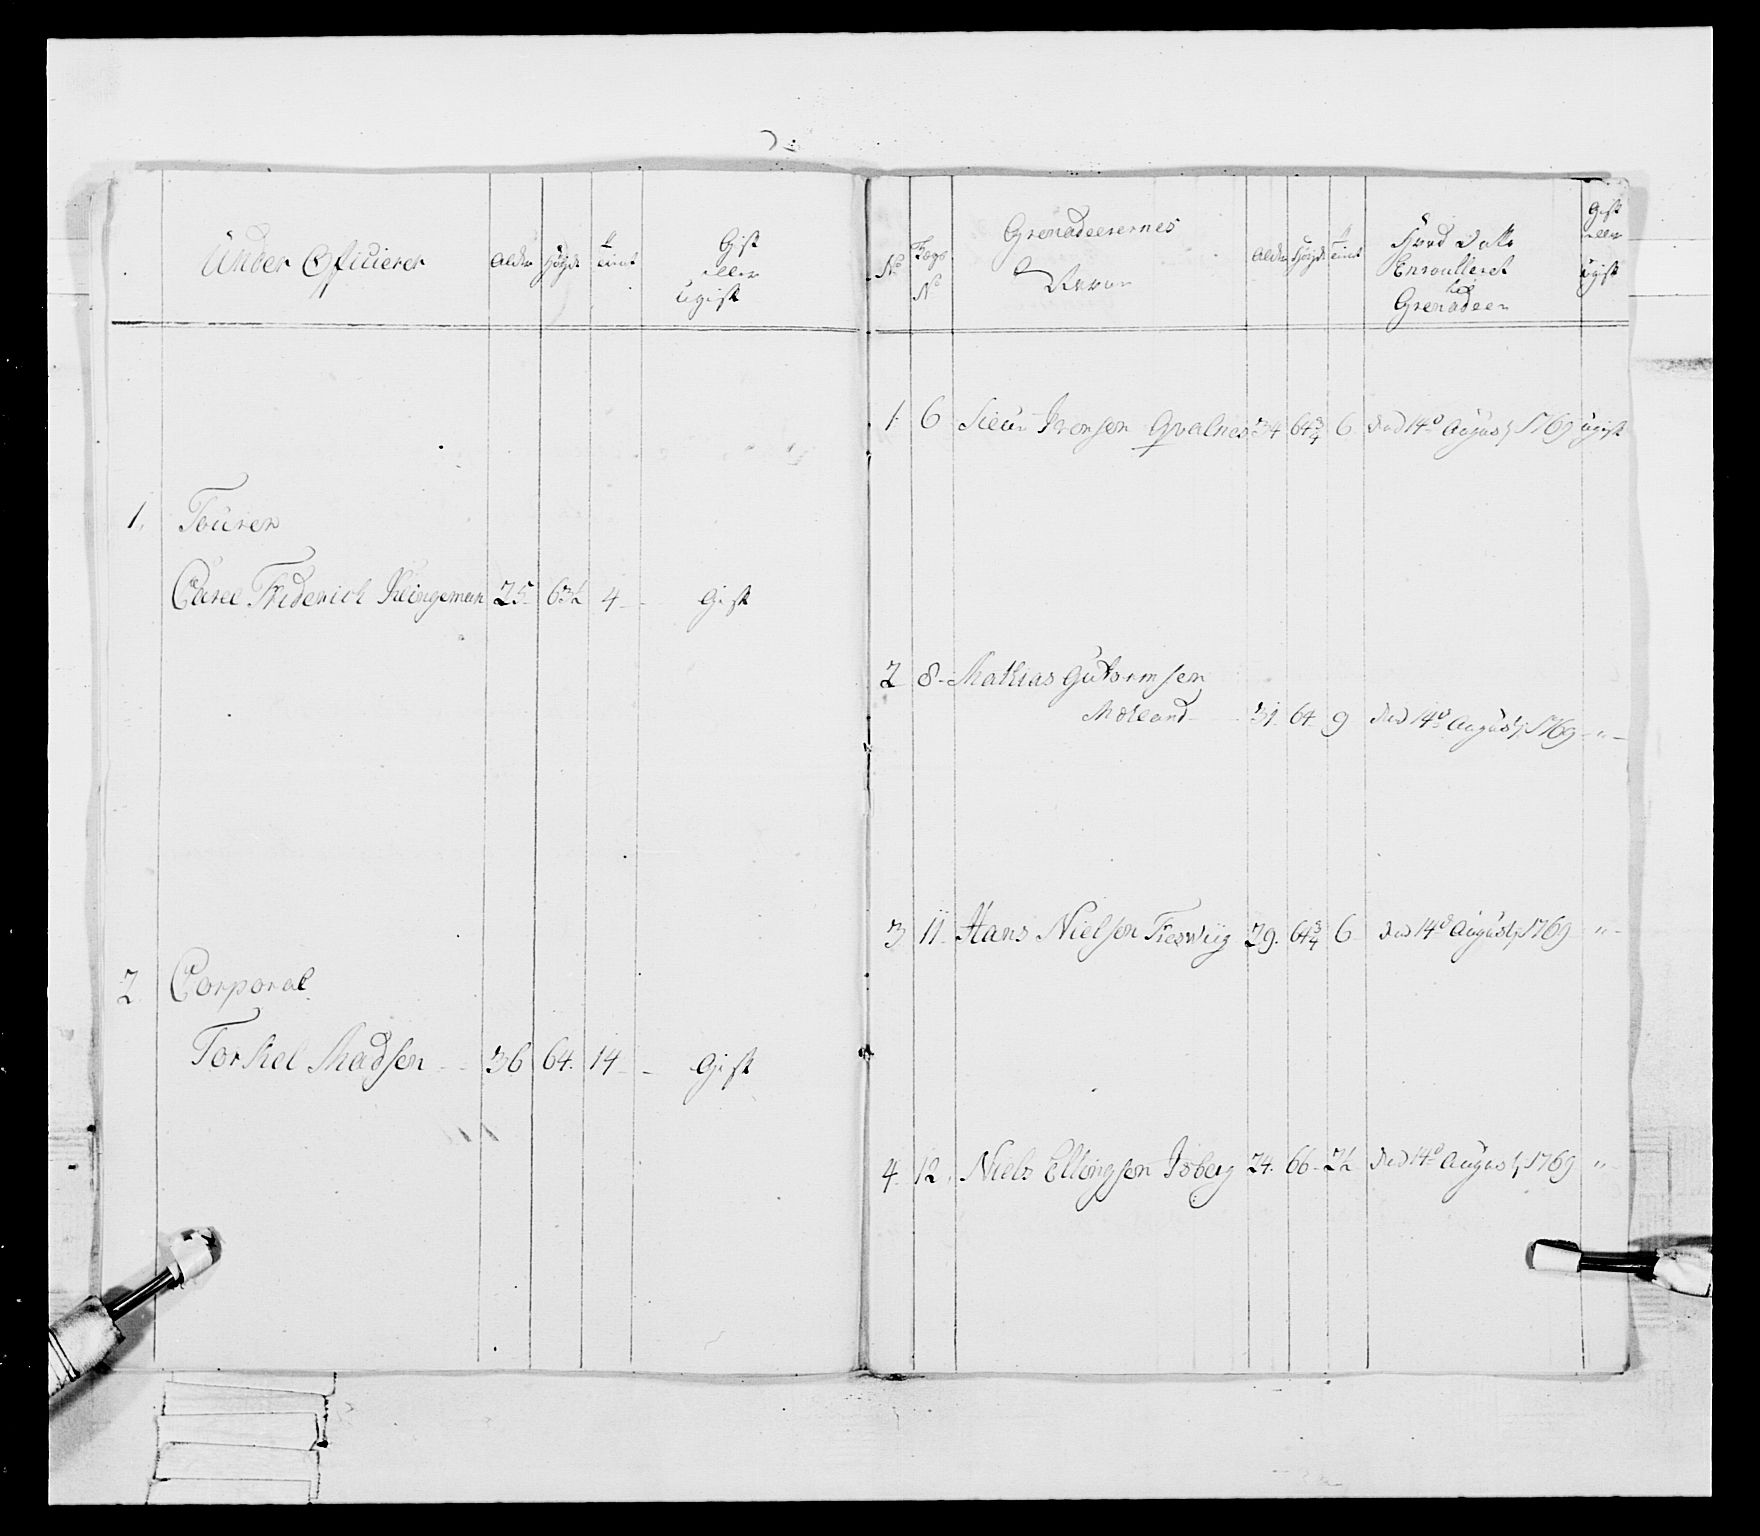 Under Officierer Alder Høyde tient Gift
eller
Ugift
1. Fourer
Carel Friderich Klingeman 25 63½ 4 - Gift
2. Corporal
Torkel Madsen - 36 64. 14 - - Gift
No Lægs No Grenadeerernes Navne Alder Høyde tient Hvad Dato Enroulleret til Grenadeer Gift eller Ugift
1. 6 Iversen Qvalnes 34 64¾ 6 den 14de August 1769 Ugift
2 8. Mathias Gutormsen
Møland - 31. 64. 9 den 14de August 1769 - " -
3 11. Hans Nielsen 29. 64¾ 6 den 14de August 1769 - " -
4. 12. Niels Ellingsen Isberg 24. 66. 2½ den 14de August 1769 "